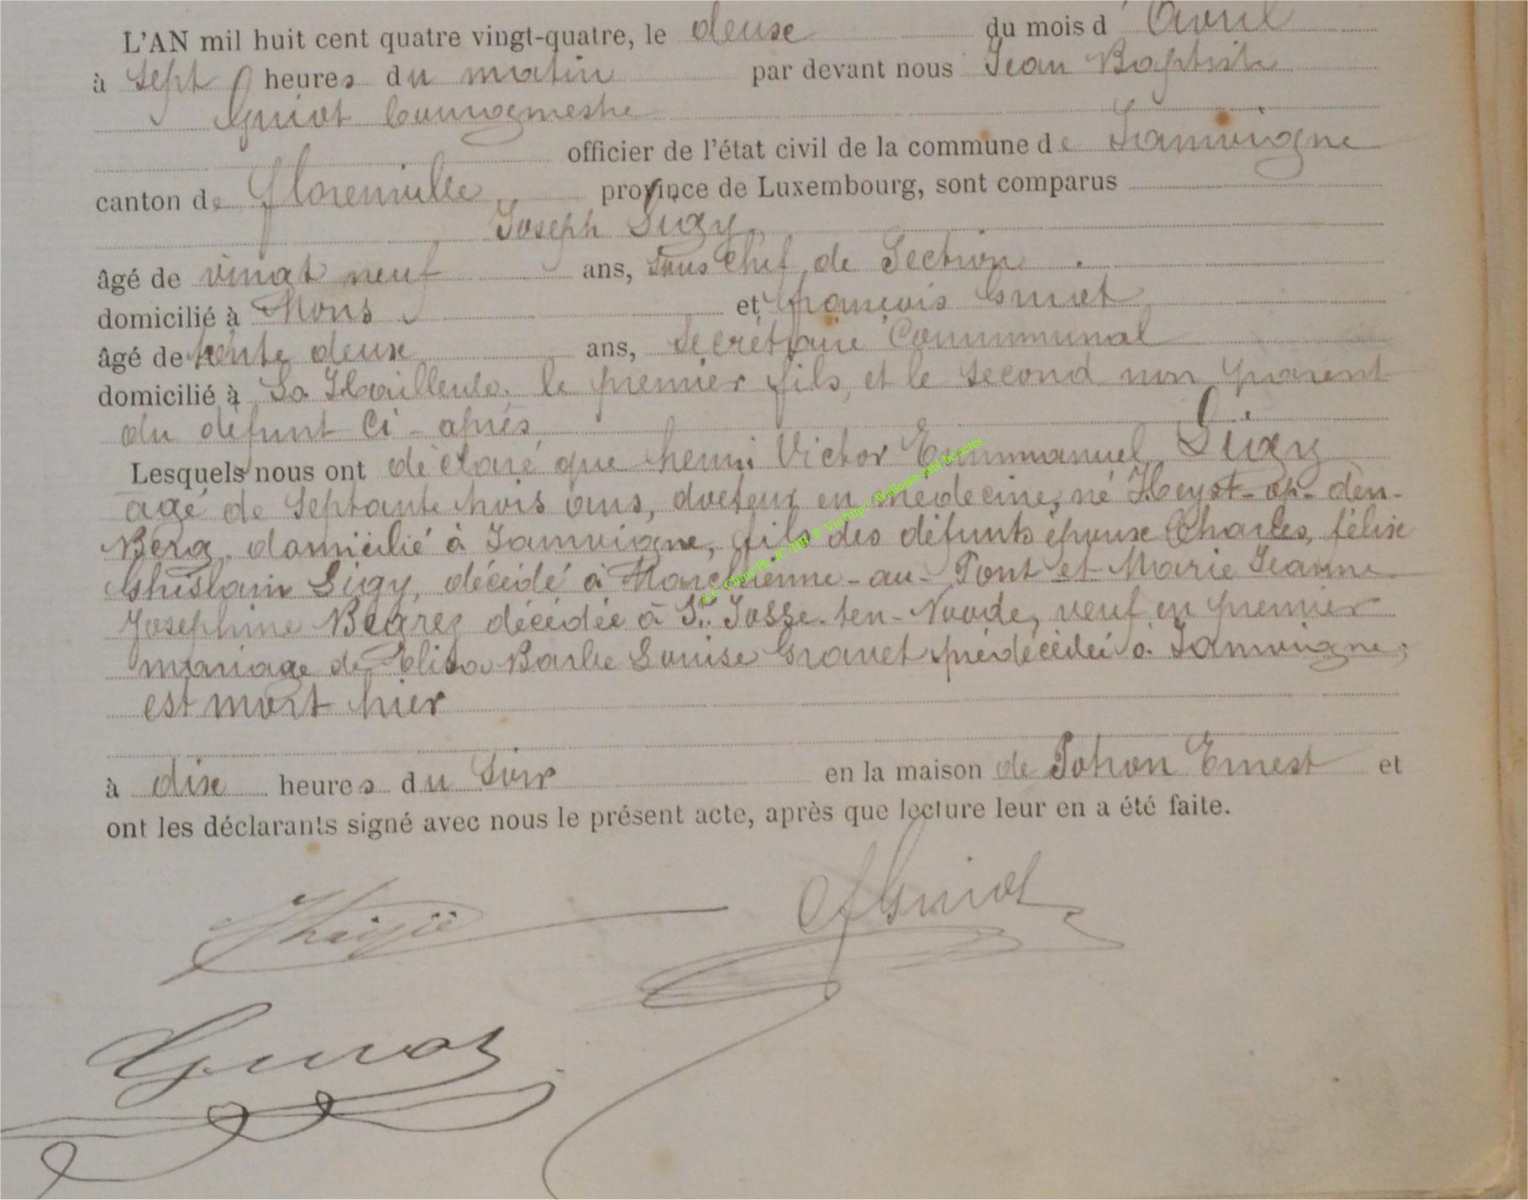 L'AN mil huit cent quatre vingt-quatre, le deuxe du mois d'Avril
à Sept heures du matin par devant nous Jean Baptiste
Guiot bourgmestre
officier de l'état civil de la commune de Jamoigne
canton de Florenville province de Luxembourg, sont comparus
Joseph Sigy
âgé de vingt neuf ans, Sous Chef de Section
domicilié à Mons et françois Guiot
âgé de trente deux ans, Secrétaire Communmal
domicilié à La Hailleule. le premier fils, et le second non parent
du défunt Ci-après
Lesquels nous ont déclaré que henri Victor Emmmanuel Sigy
agé de Septante trois ans, docteur en medecine, né Heyst-op-den-
Berg, domicilié à Jamoigne, fils des défunts époux Charles, félix
Ghislain Sigy, décédé à Marchienne-au-Pont et Marie Jeanne
Josephine Bearez décédée à St. Josse-ten-Noode, veuf en premier
mariage de Elisa Barbe Louise Gravet prédécédée à Jamoigne;
est mort hier
à dix heures du Soir en la maison de Pohon Ernest et
ont les déclarants signé avec nous le présent acte, après que lecture leur en a été faite.
Guiot
Guiot